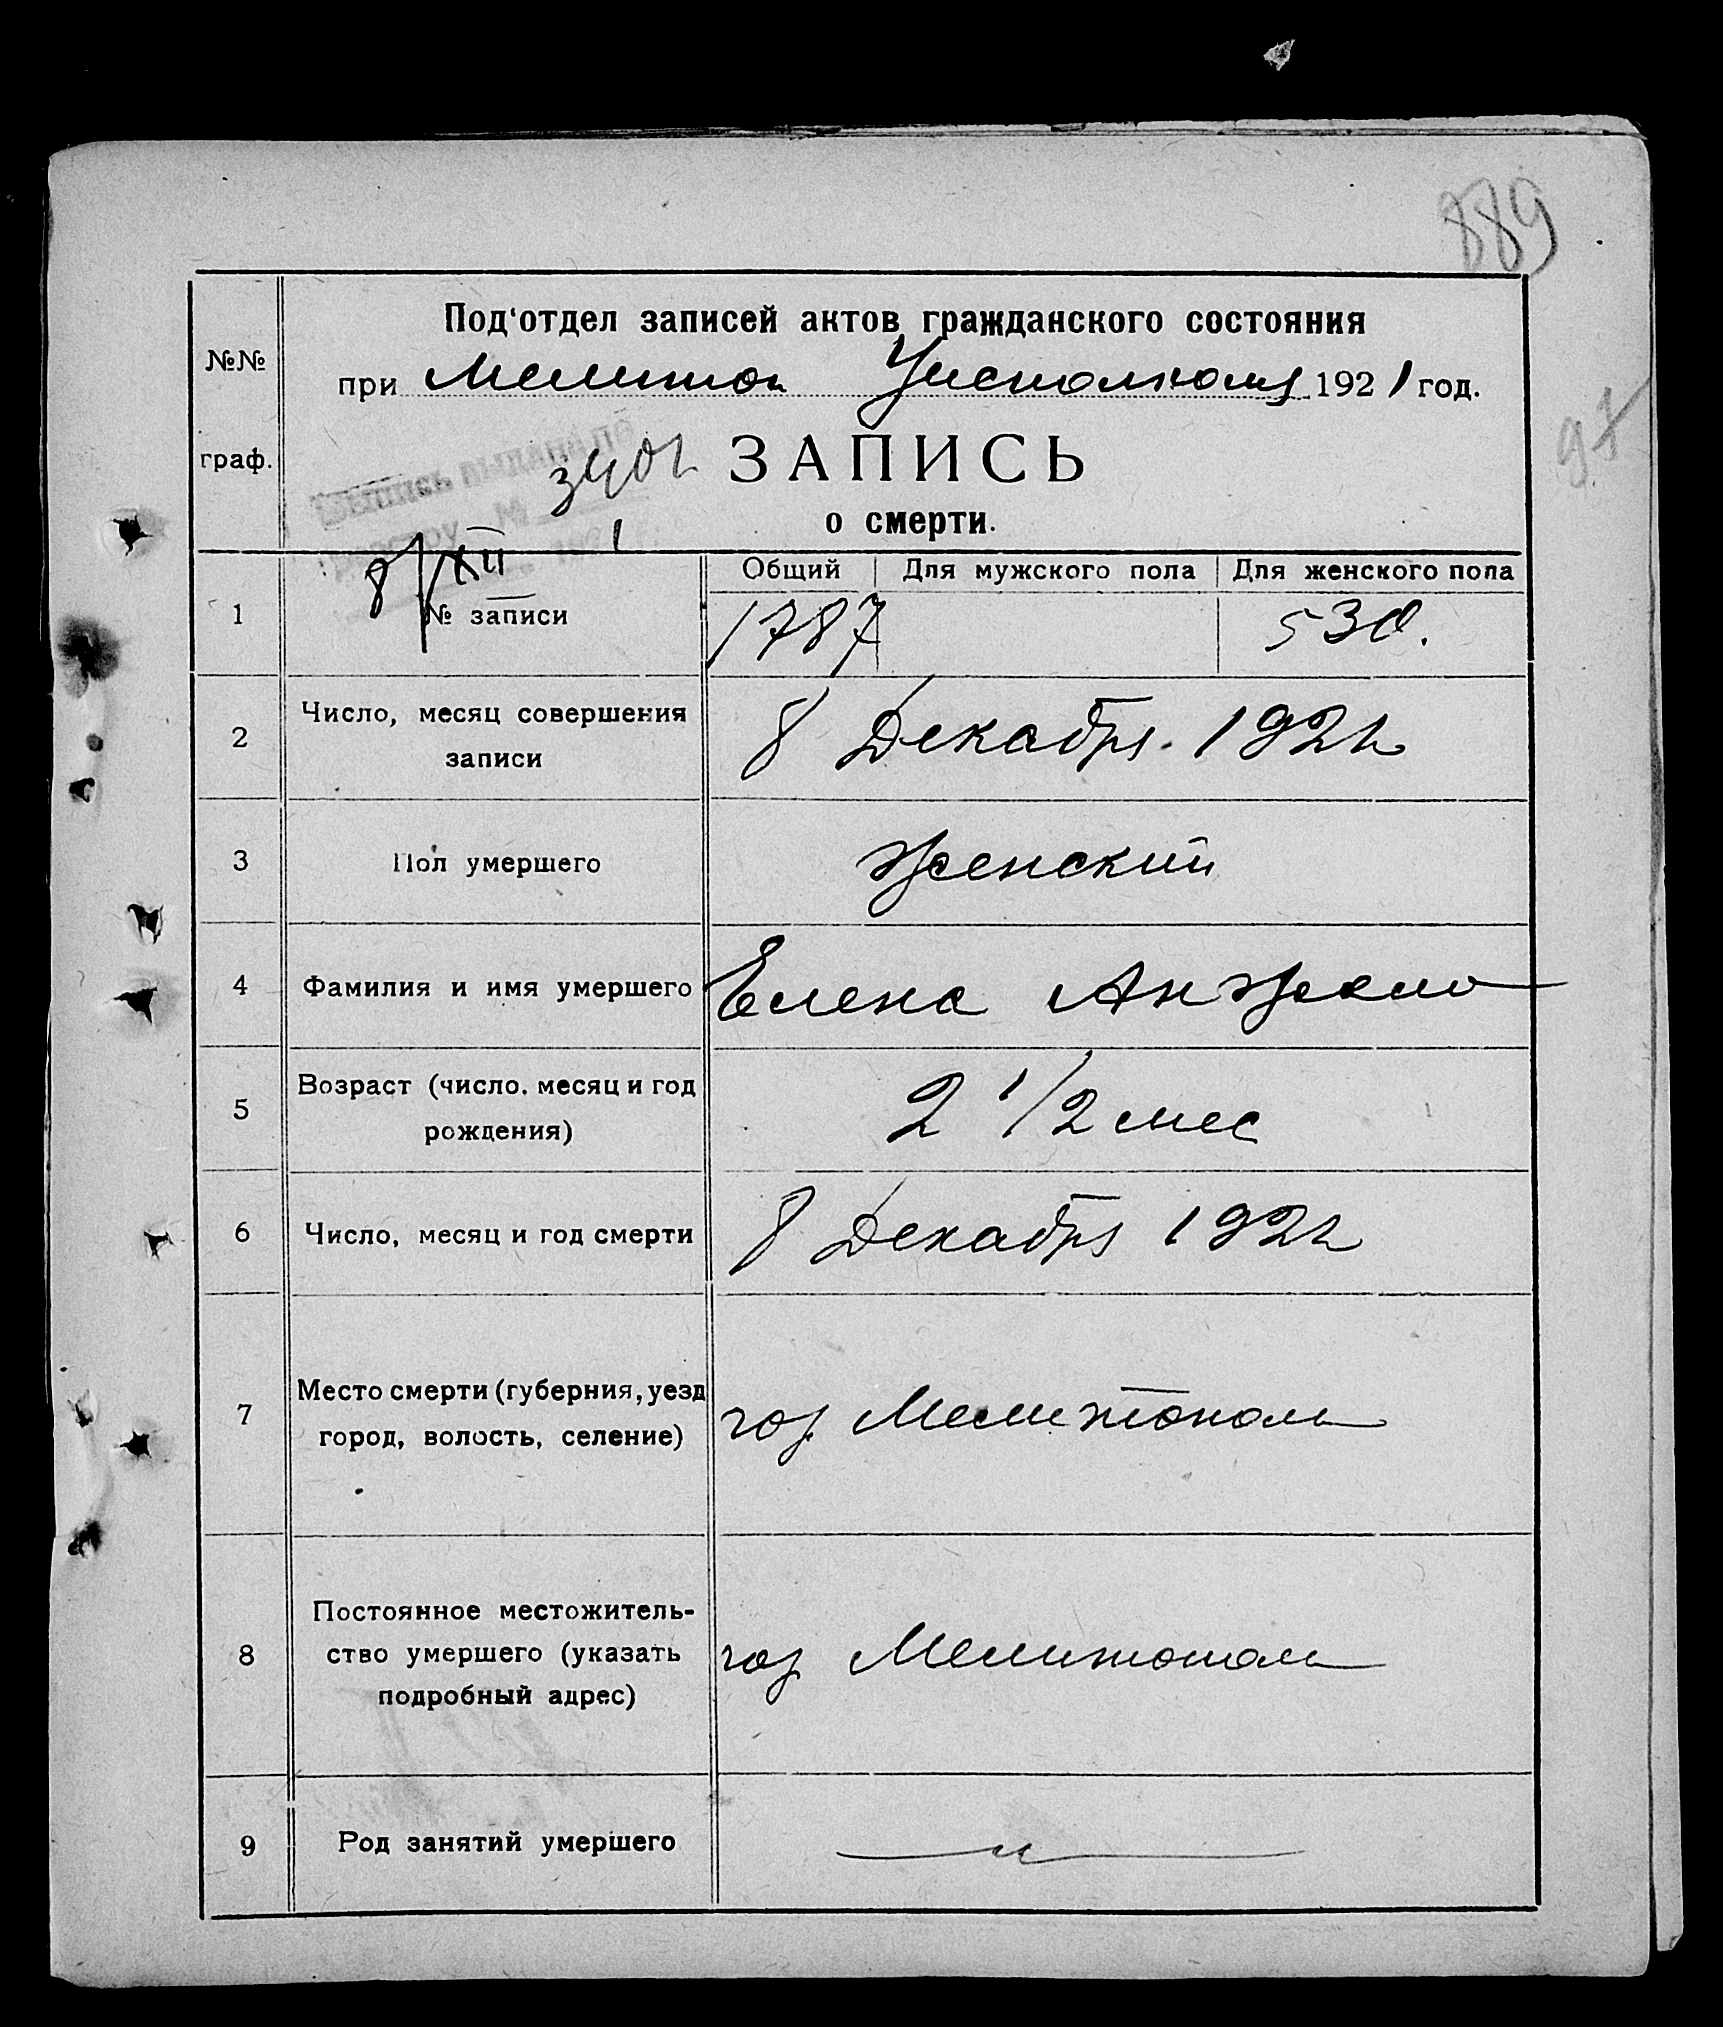 889
Под'отдел записей актов гражданского состояния
№№
при Мелитоп Уисполкома 1921 год.
97
граф.
Выпись выдана по
3401
ЗАПИСЬ
№
о смерти.
8/XII 1
Общий Для мужского пола Для женского пола
1 № записи 1787 530.
2 Число, месяц совершения записи 8 Декабря 1921
3 Пол умершего Женский
4 Фамилия и имя умершего Елена Анжело
5 Возраст (число, месяц и год рождения) 2 1/2 мес
6 Число, месяц и год смерти 8 Декабря 1921
7 Место смерти (губерния, уезд город, волость, селение) гор Мелитополь
8 Постоянное местожитель-
ство умершего (указать подробный адрес) гор Мелитополь
9 Род занятий умершего